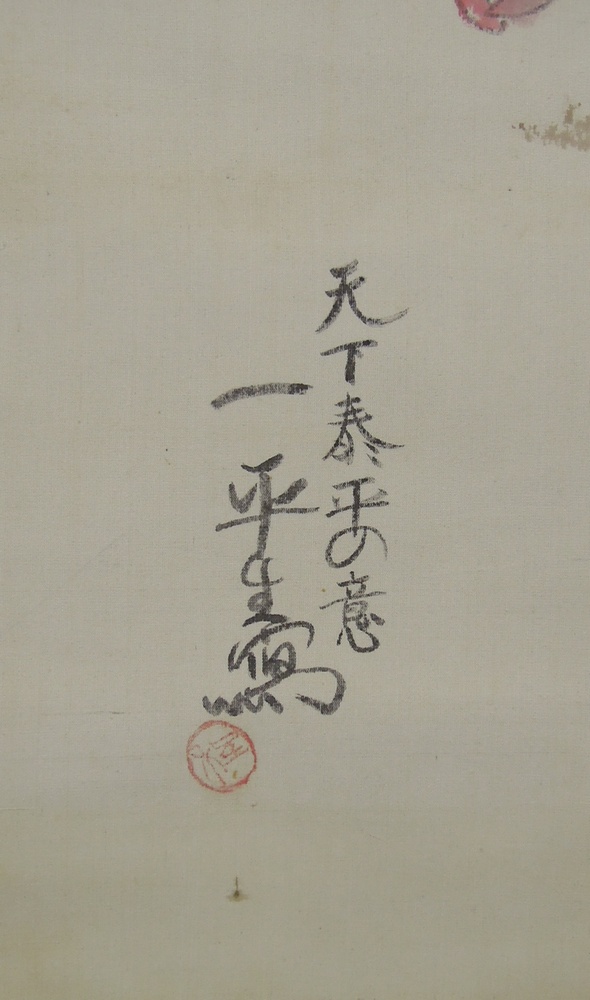 天下泰平の意
一平生寫